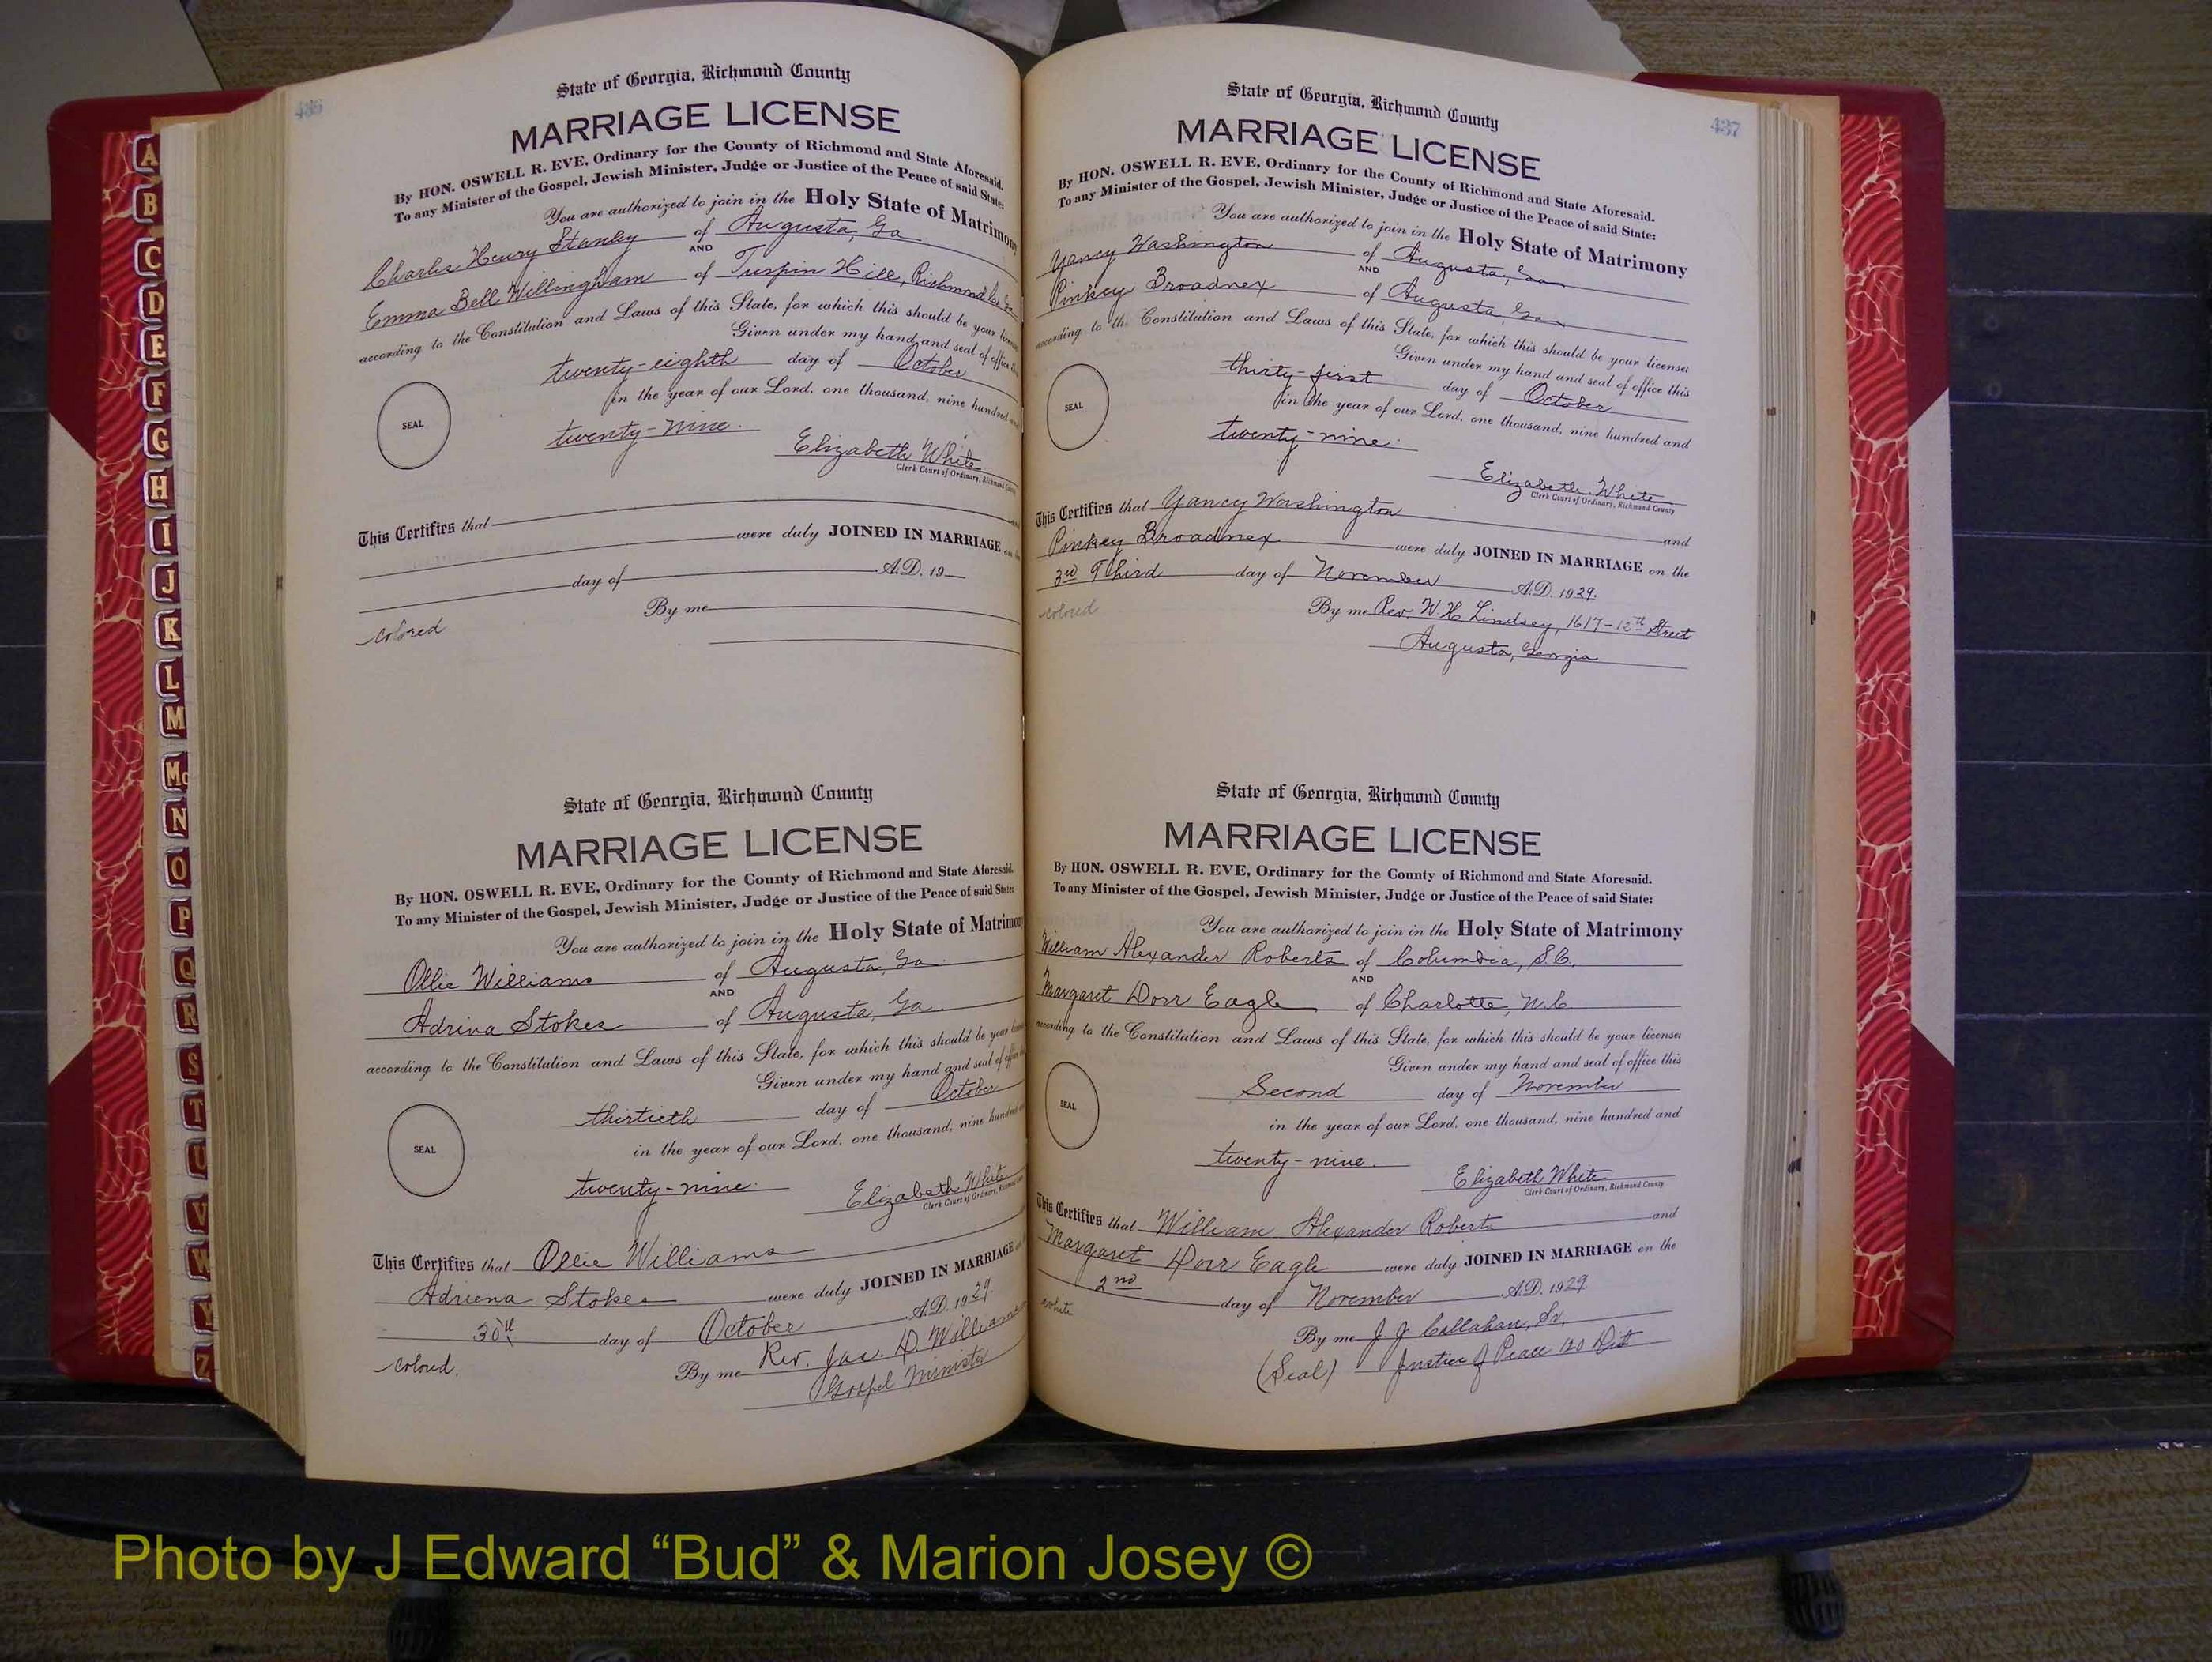 436
State of Georgia, Richmond County
MARRIAGE LICENSE
By HON. OSWELL R. EVE, Ordinary for the County of Richmond and State Aforesaid.
To any Minister of the Gospel, Jewish Minister, Judge or Justice of the Peace of said State:
You are authorized to join in the Holy State of Matrimony
Charles Henry Stanley of Augusta, Ga.
AND
Emma Bell Willingham of Turpin Hill, Richmond Co. Ga
according to the Constitution and Laws of this State, for which this should be your license
Given under my hand and seal of office
twenty-eighth day of October
in the year of our Lord, one thousand, nine hundred and
SEAL
twenty-nine.
Elizabeth White
Clerk Court of Ordinary, Richmond County
This Certifies that
were duly JOINED IN MARRIAGE on
day of A.D. 19
By me
colored
State of Georgia, Richmond County
MARRIAGE LICENSE
By HON. OSWELL R. EVE, Ordinary for the County of Richmond and State Aforesaid.
To any Minister of the Gospel, Jewish Minister, Judge or Justice of the Peace of said State:
You are authorized to join in the Holy State of Matrimony
Ollie Williams of Augusta, Ga.
AND
Adrina Stokes of Augusta, Ga.
according to the Constitution and Laws of this State, for which this should be your license
Given under my hand and seal of office
thirtieth day of October
in the year of our Lord, one thousand, nine hundred
SEAL
twenty-nine.
Elizabeth White
Clerk Court of Ordinary, Richmond
This Certifies that Ollie Williams
Adriena Stokes were duly JOINED IN MARRIAGE
30th day of October A.D. 1929.
colored. By me Rev. Jas. D. Williams
Gospel Minister
437
State of Georgia, Richmond County
MARRIAGE LICENSE
By HON. OSWELL R. EVE, Ordinary for the County of Richmond and State Aforesaid.
To any Minister of the Gospel, Jewish Minister, Judge or Justice of the Peace of said State:
You are authorized to join in the Holy State of Matrimony
Yancy Washington of Augusta, Ga
AND
Pinkey Broadnex of Augusta, Ga
according to the Constitution and Laws of this State, for which this should be your license:
Given under my hand and seal of office this
thirty-first day of October
in the year of our Lord, one thousand, nine hundred and
SEAL
twenty-nine.
Elizabeth White
Clerk Court of Ordinary, Richmond County
This Certifies that Yancy Washington and
Pinkey Broadnex were duly JOINED IN MARRIAGE on the
3rd Third day of November A.D. 1929.
colored By me Rev. W. H. Lindsey, 1617-12th Street
Augusta, Georgia
State of Georgia, Richmond County
MARRIAGE LICENSE
By HON. OSWELL R. EVE, Ordinary for the County of Richmond and State Aforesaid.
To any Minister of the Gospel, Jewish Minister, Judge or Justice of the Peace of said State:
You are authorized to join in the Holy State of Matrimony
William Alexander Roberts of Columbia, S.C.
AND
Margaret Dorr Eagle of Charlotte, N.C
according to the Constitution and Laws of this State, for which this should be your license:
Given under my hand and seal of office this
Second day of November
in the year of our Lord, one thousand, nine hundred and
SEAL
twenty-nine.
Elizabeth White
Clerk Court of Ordinary, Richmond County
This Certifies that William Alexander Roberts and
Margaret Dorr Eagle were duly JOINED IN MARRIAGE on the
2nd day of November A.D. 1929
white
By me J. J. Callahan, Sr.
(Seal) Justice of Peace 120 Dist
A
B
C
D
E
F
G
H
I
J
K
L
M
Mc
N
O
P
Q
R
S
T
U
V
W
Y
Z
Photo by J Edward “Bud” & Marion Josey ©